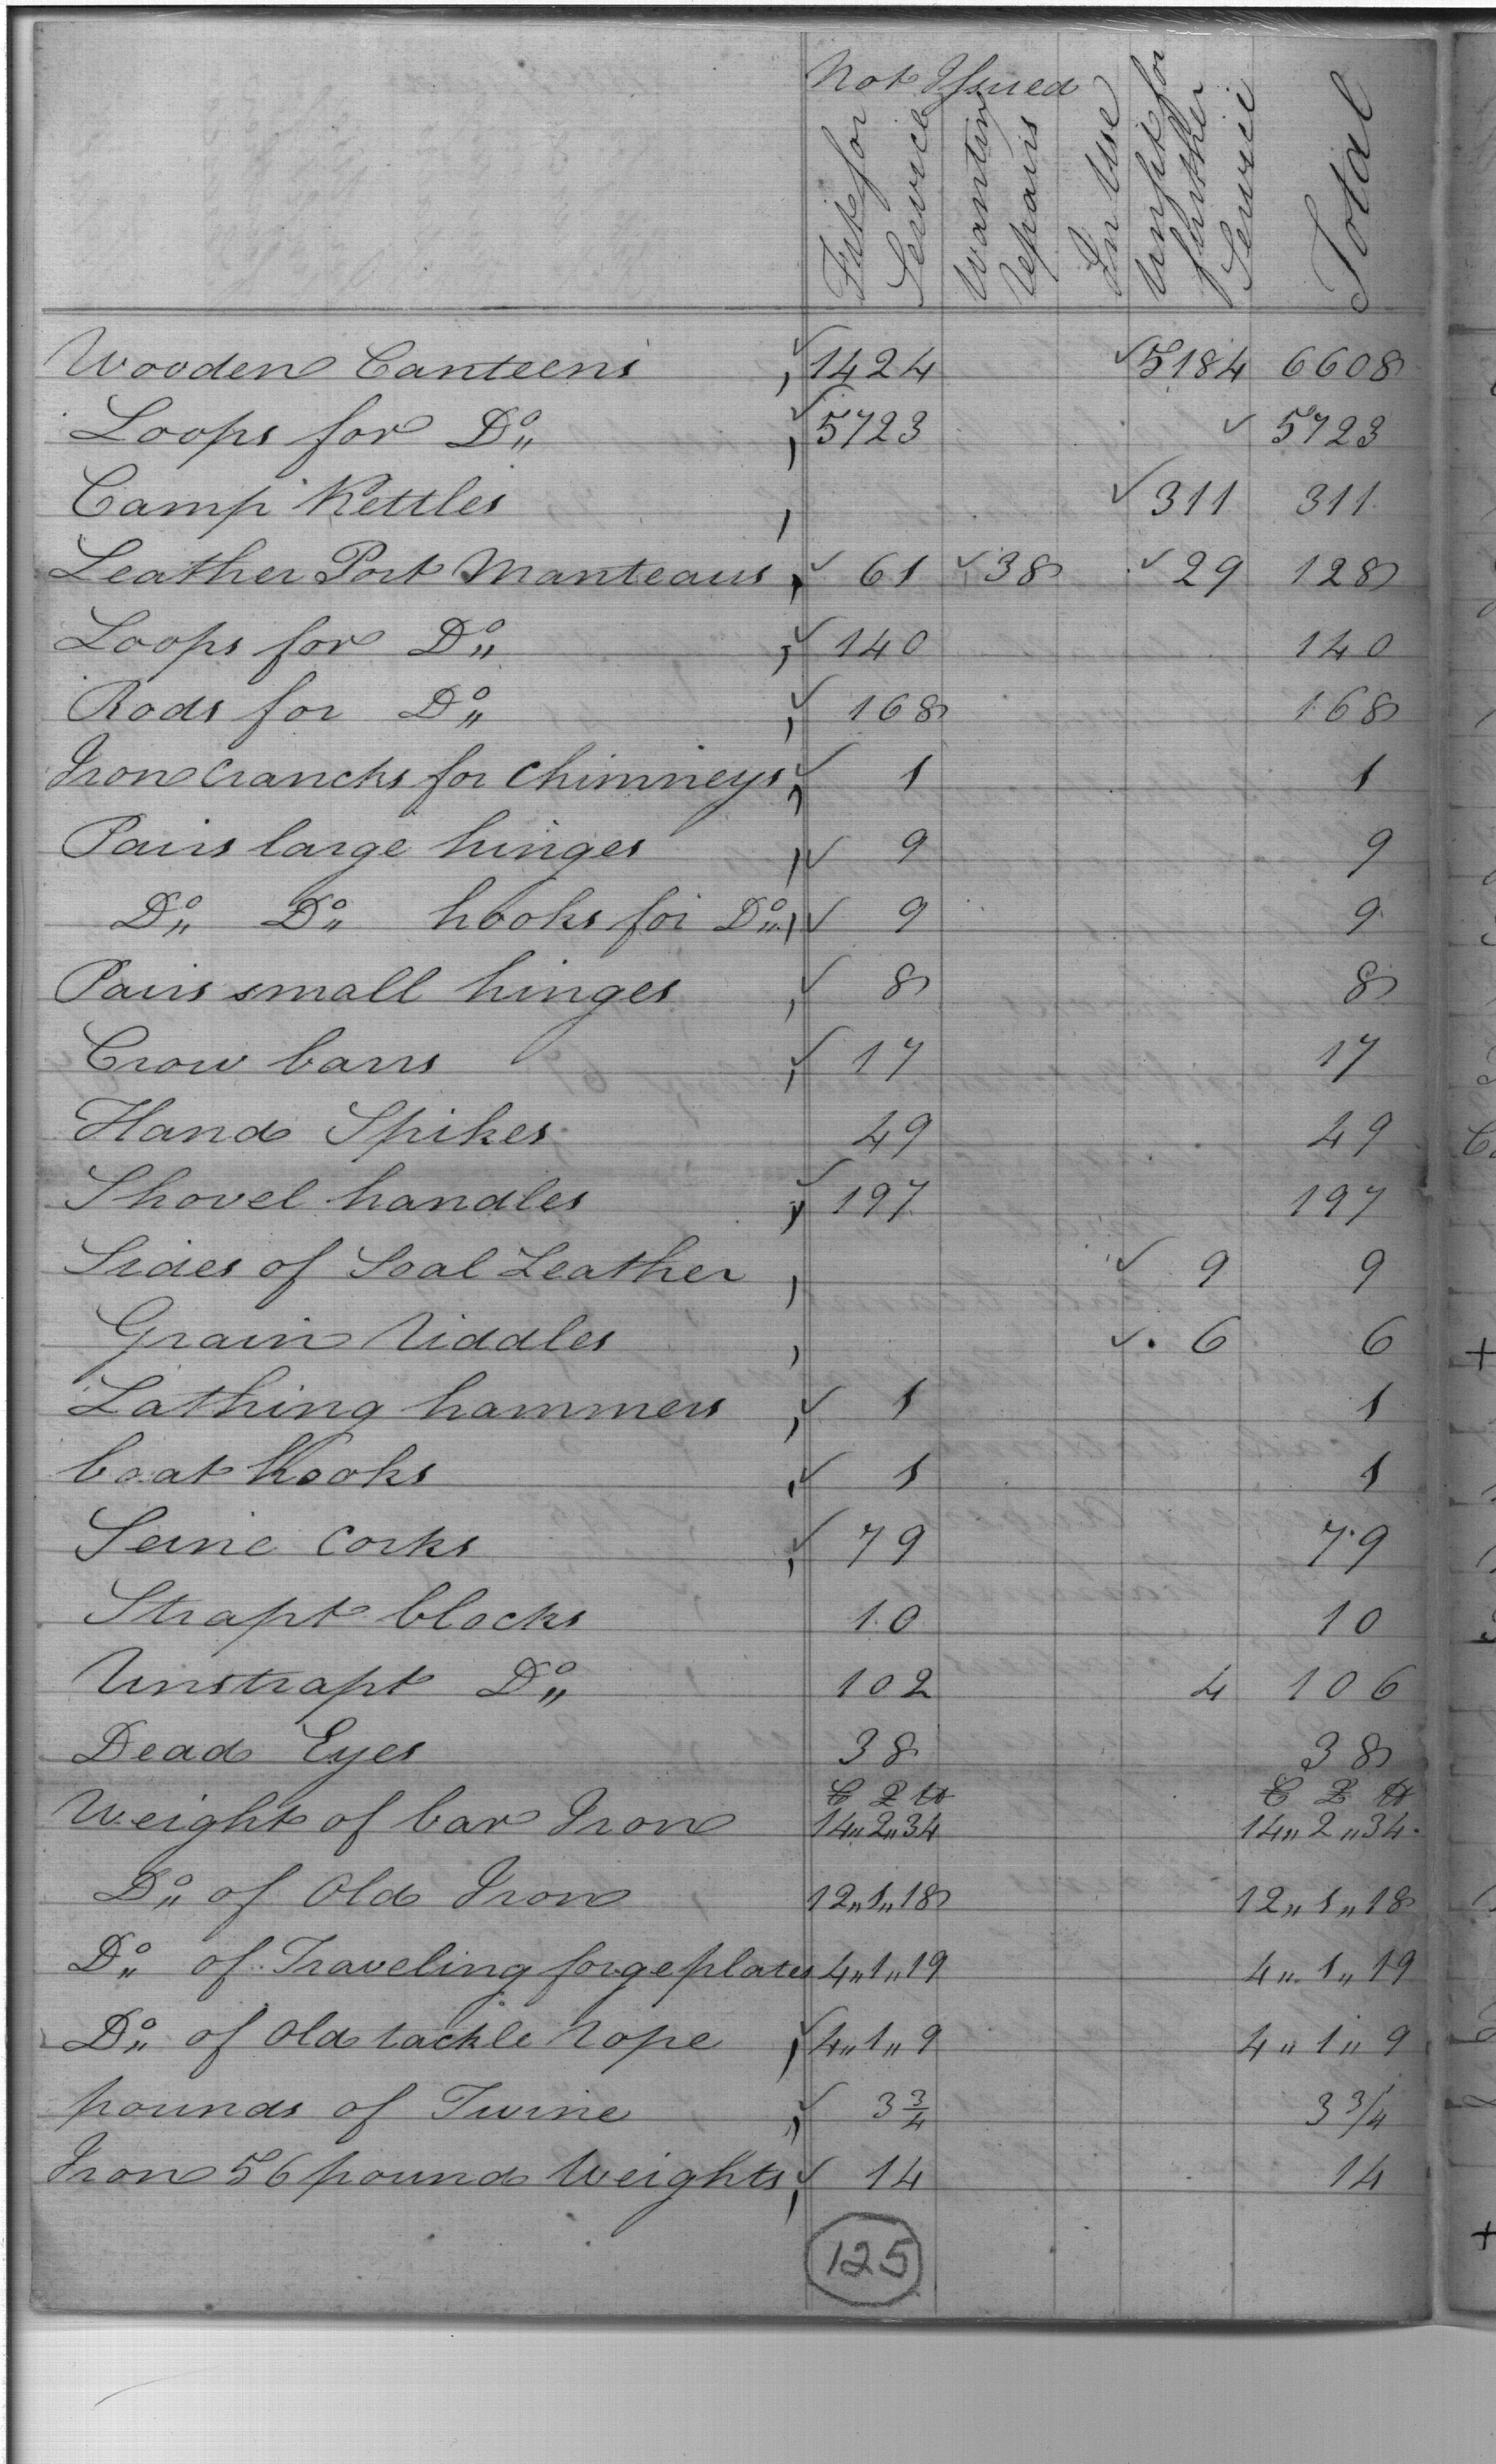 Not Issued
Fit for Service
Wanting repairs
In Use
Unfit for further Service
Total
Wooden Canteens , ✓1424 ✓5184 6608
Loops for Do,, , ✓5723 ✓ 5723
Camp Kettles , ✓311 311
Leather Port Manteaus , ✓ 61 ✓38 ✓29 128
Loops for Do,, , ✓140 140
Rods for Do,, , ✓168 168
Iron Crancks for Chimneys , ✓ 1 1
Pairs large hinges , ✓ 9 9
Do,, Do,, hooks for Do,, , ✓ 9 9
Pairs small hinges , ✓ 8 8
Crow bars , ✓ 17 17
Hand Spikes 49 49
Shovel handles , ✓197 197
Sides of Soal Leather , ✓ 9 9
Grain Riddles , ✓. 6 6
Lathing hammers , ✓ 1 1
boat hooks , ✓ 1 1
Seine Corks , ✓ 79 79
Strapt blocks 10 10
Unstrapt Do,, 102 4 106
Dead Eyes 38 38
C Q lb C Q lb
Weight of bar Iron 14,,2,,34 14,,2,,34.
Do,, of Old Iron 12,,1,,18 12,,1,,18
Do,, of Traveling forge plates 4,,1,,19 4,,1,,19
Do,, of Old tackle rope , ✓4,,1,,9 4,,1,,9
pounds of Twine , ✓ 3 3/4 3 3/4
Iron 56 pound Weights , ✓ 14 14
125